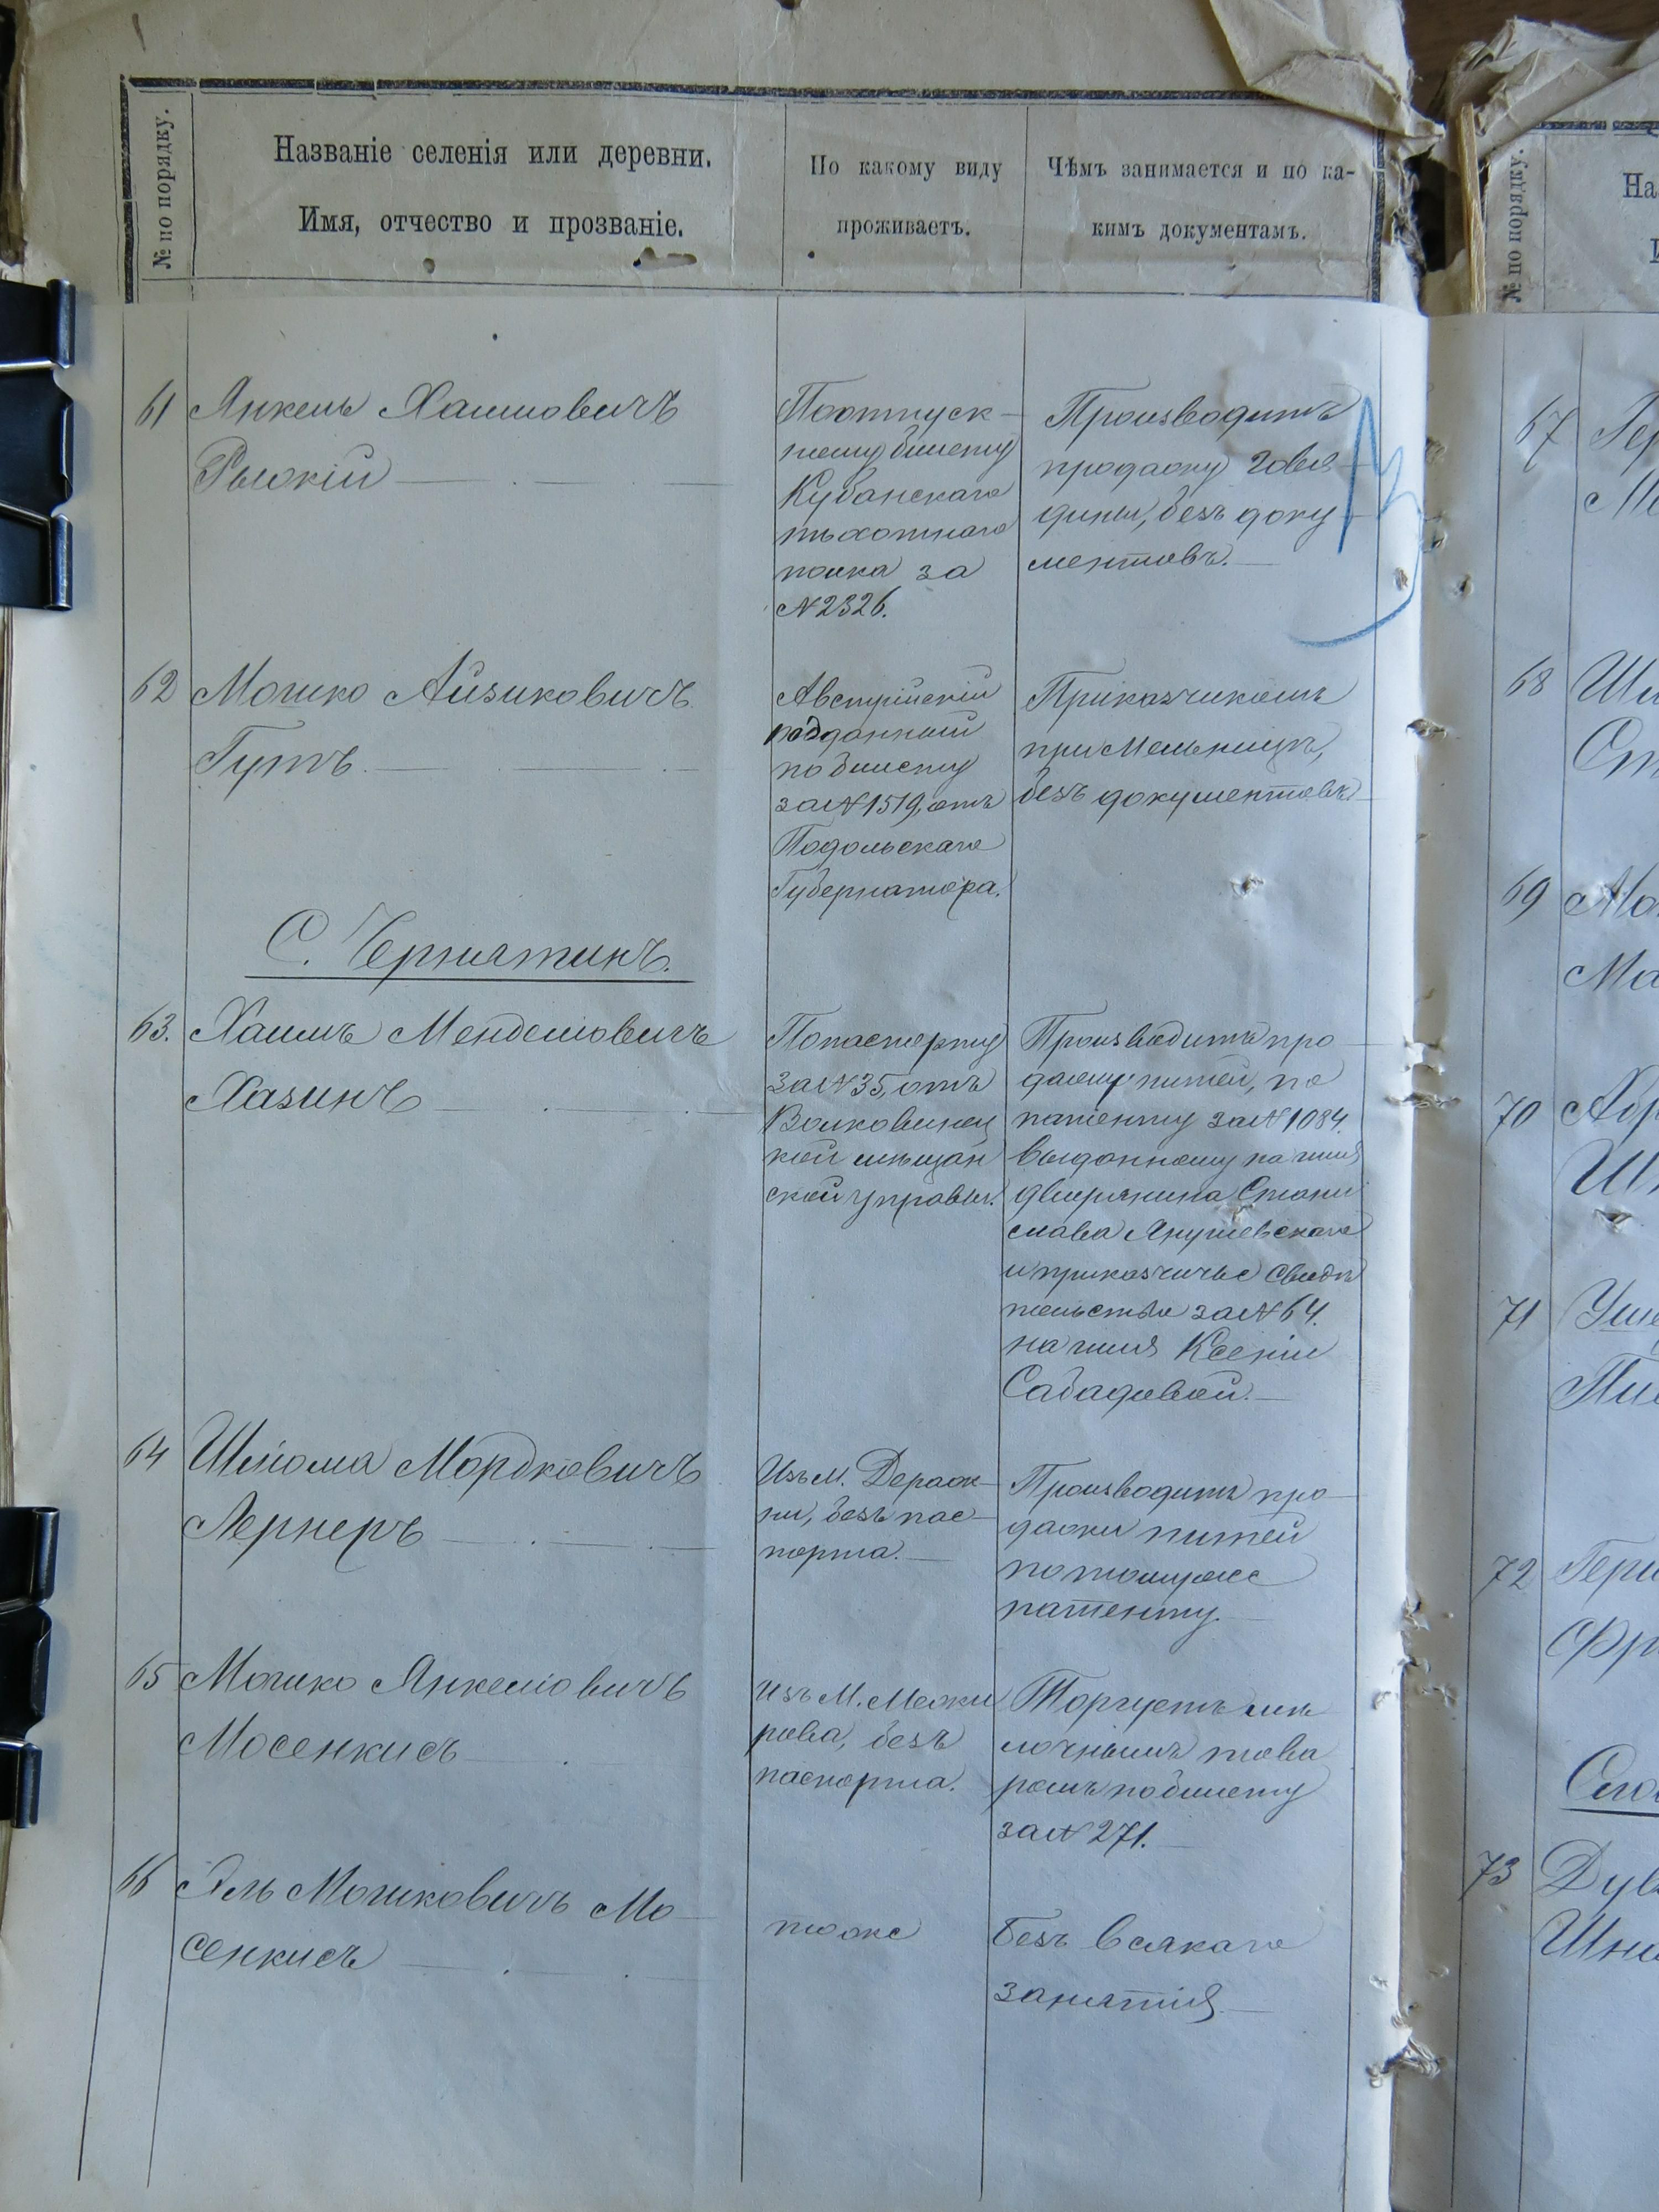 № по порядку.
Названіе селенія или деревни.
Имя, отчество и прозваніе.
По какому виду
проживаетъ.
Чѣмъ занимается и по ка-
кимъ документамъ.
61
Янкель Хаимовичъ
Рыжій
По отпуск-
ному билету
Кубанскаго
пѣхотнаго
полка за
№ 2326.
Производитъ
продажу говя-
дины, безъ доку-
ментовъ.
62
Мошко Айзиковичъ
Гутъ.
Австрійскій
подданный
по билету
за № 1519, отъ
Подольскаго
Губернатора.
Приказчикомъ
при Мельницѣ,
безъ документовъ
С. Чернятинъ.
63.
Хаимъ Менделіовичъ
Хазинъ
По паспорту
за № 35, отъ
Волковинец
кой мѣщан
ской управы.
Производитъ про-
дажу питей, по
патенту за № 1084.
выданному на имя
дворянина Стани
слава Янушевскаго
и приказчичье свидѣ
тельство за № 64.
на имя Ксеніи
Сабадовой.
64
Шліома Мордковичъ
Лернеръ
Изъ М. Дераж-
ни, безъ пас-
порта.
Производитъ про-
дажи питей
по томуже
патенту.
65
Мошко Янкеліовичъ
Мосенкисъ
изъ М. Межи
рова, безъ
паспорта.
Торгуетъ ме
лочнымъ това
ромъ по билету
за № 271.
66
Эль Мошковичъ Мо-
сенкисъ
тоже
безъ всякаго
занятія.
№ по порядку.
На
67
Гер
68
69
Мо
Ма
70
Абр
71
72
Гер
Фр
73